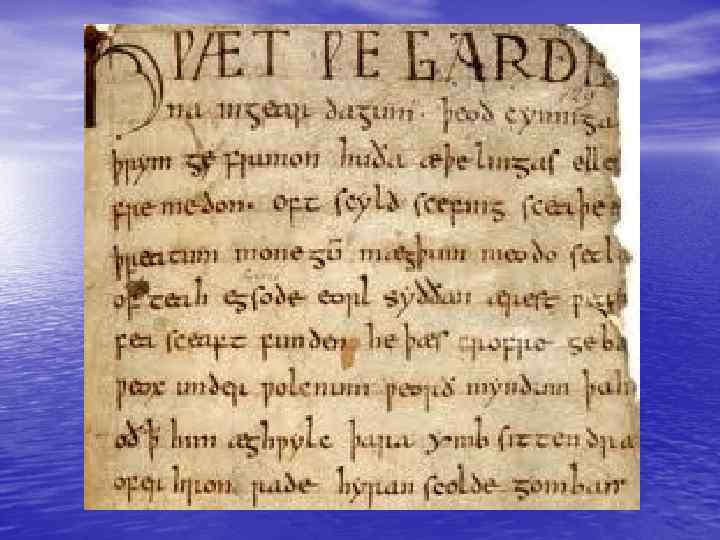 HǷÆT ǷE GARDE
na ingear dagum · þeod cyninga
þrym ge frunon huða æþelingas elle
fremedon. oft scyld scefing sceaþe
þreatum monegū mægþum meodo setla
of teah egsode eorl syððan ærest
fea sceaft funden he þæs frofre geba
ƿeox under ƿolcnum ƿeorð myndum þah
oð ꝥ him æghƿylc þara ymb sittendra
ofer hron rade hyran scolde gomban